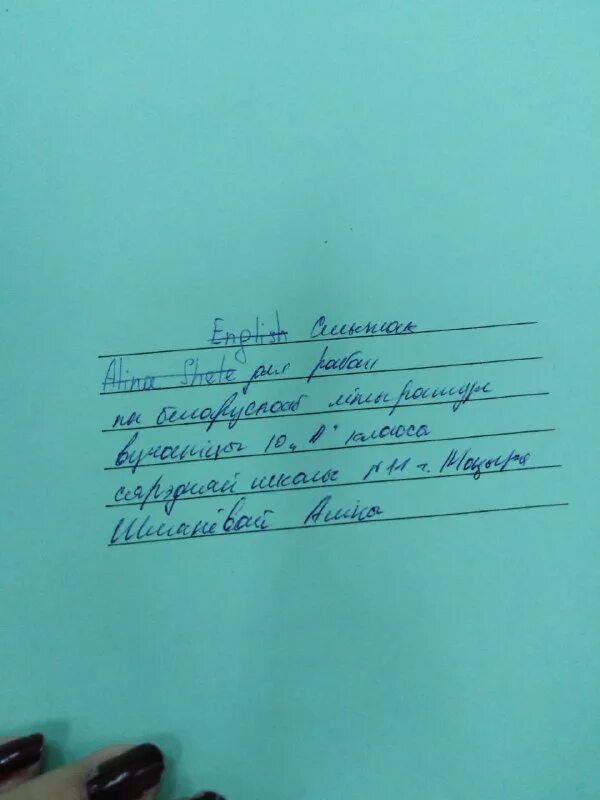 English Сшытак
Alina Shete для работ
па беларускай літаратуры
вучаніцы 10 „А" класса
сярэдняй школы №11 г. Мазыра
Аліны